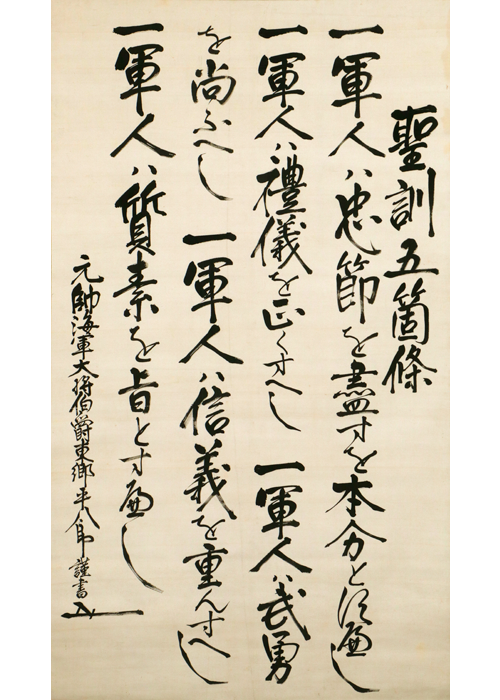 聖訓五箇條
一軍人ハ忠節を盡すを本分とすへし
一軍人ハ禮儀を正くすへし 一軍人ハ武勇
を尚ふへし 一軍人ハ信義を重んすへし
一軍人ハ質素を旨とすへし
元帥海軍大将伯爵東郷平八郎謹書